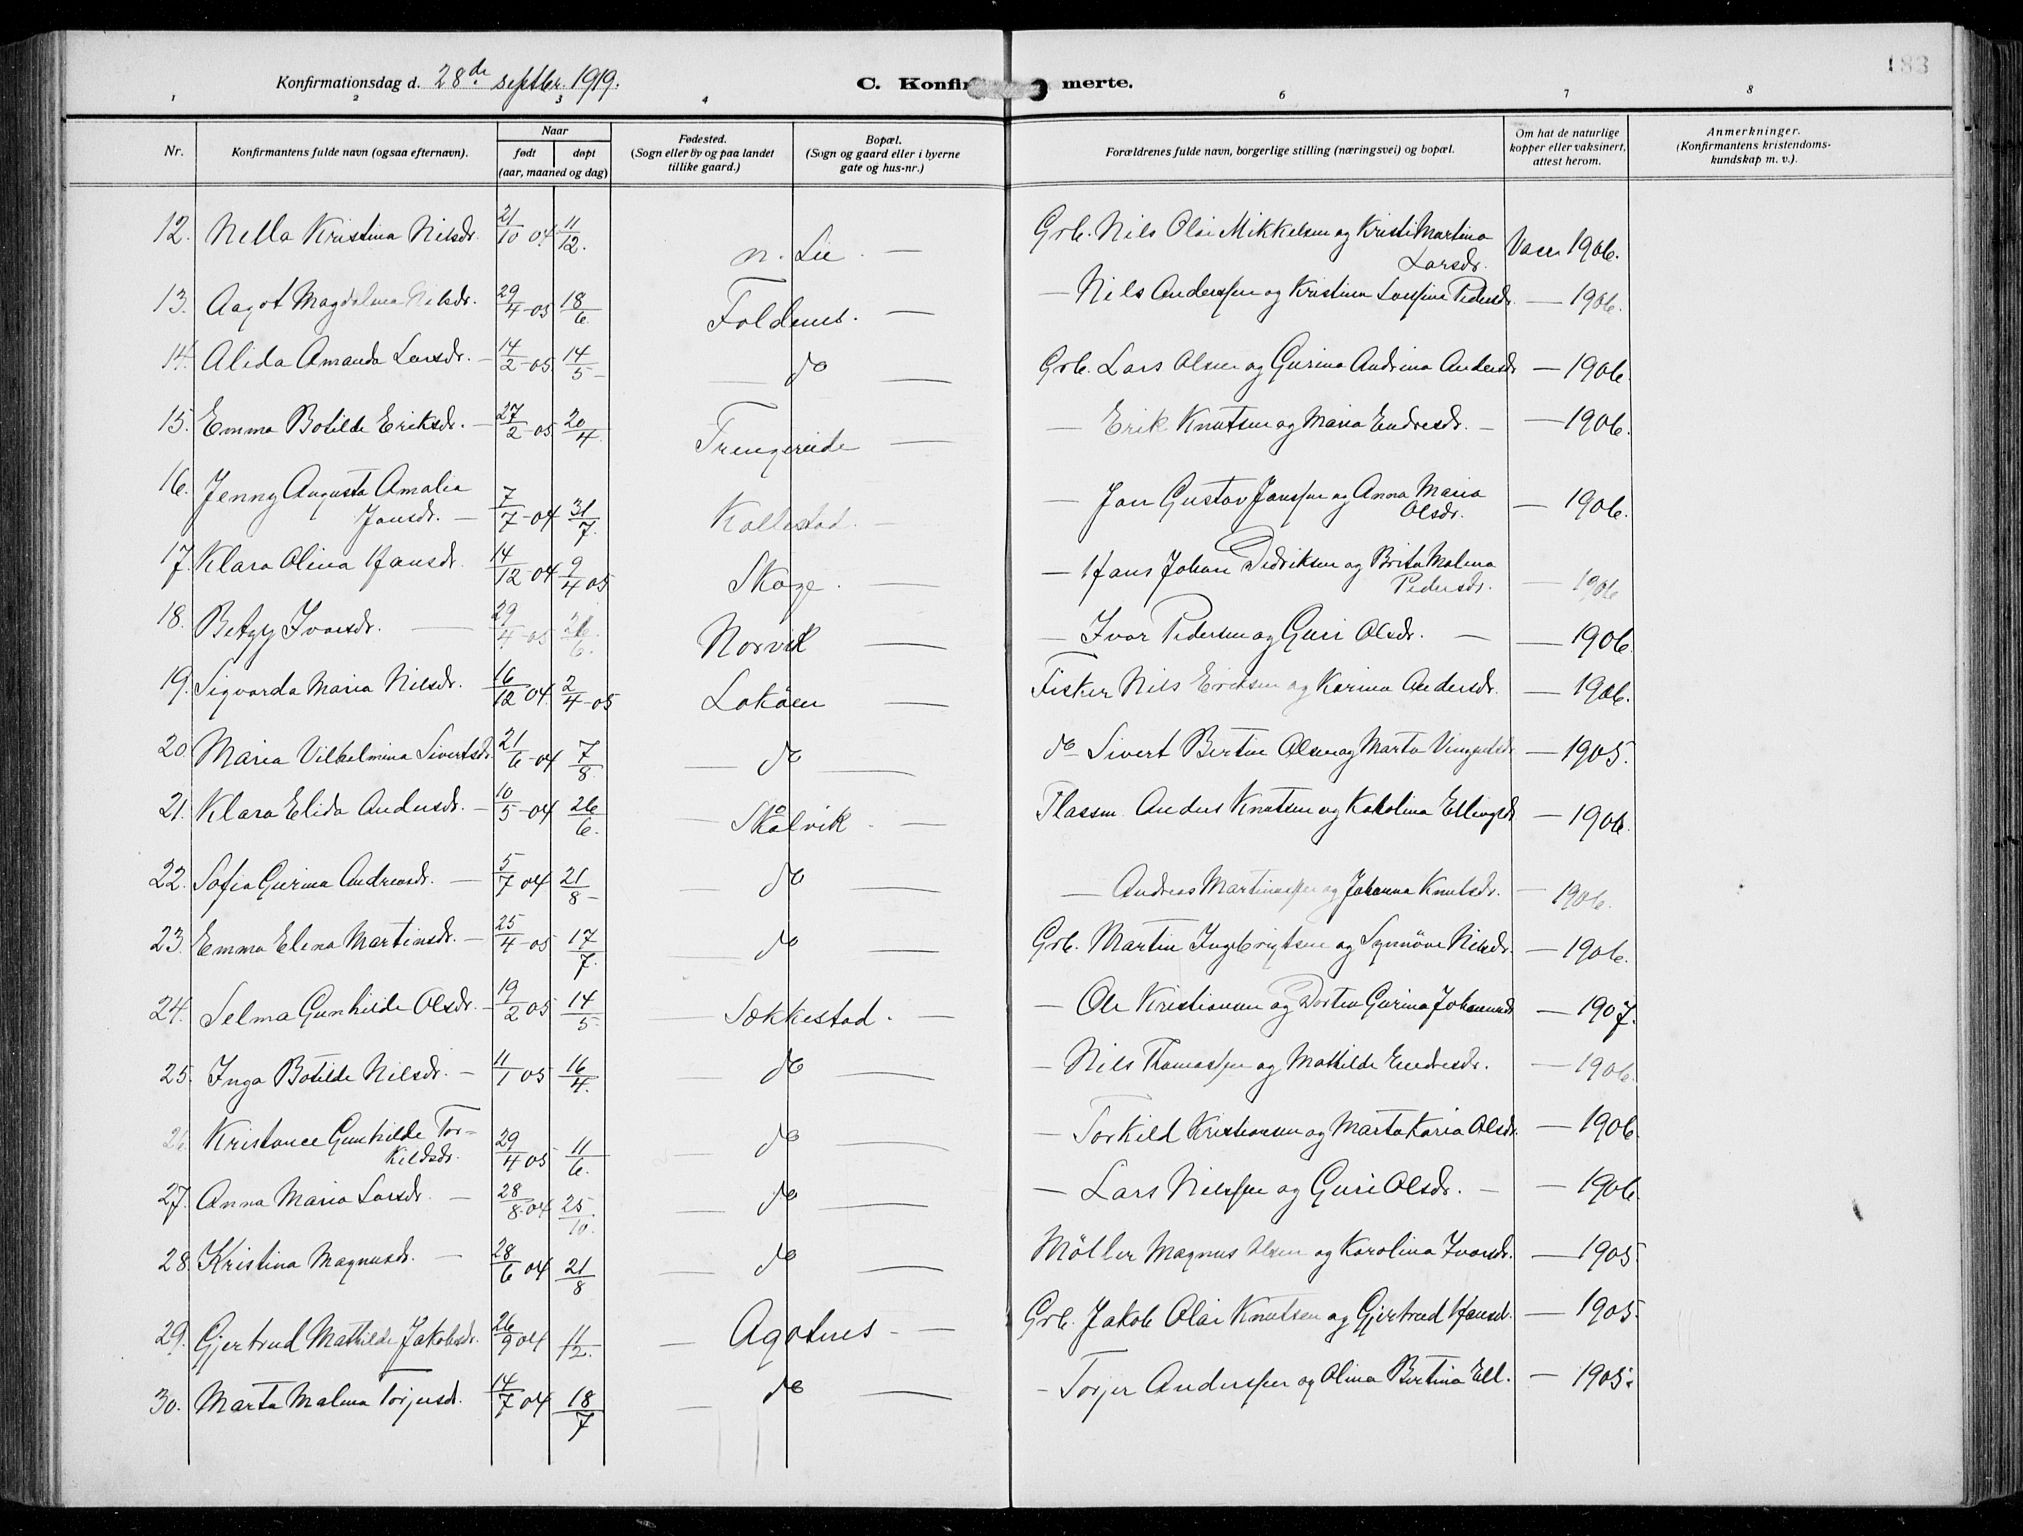 183
Konfirmationsdag d. 28de septbr. 1919.
C. Konfirmerte.
1 2 3 4 6 7 8
Nr.
Konfirmantens fulde navn (ogsaa efternavn).
Naar
født
døpt
(aar, maaned og dag)
Fødested.
(Sogn eller by og paa landet
tillike gaard.)
Bopæl.
(Sogn og gaard eller i byerne
gate og hus-nr.)
Forældrenes fulde navn, borgerlige stilling (næringsvei) og bopæl.
Om hat de naturlige
kopper eller vaksinert,
attest herom.
Anmerkninger.
(Konfirmantens kristendoms-
kundskap m. v.)
12. Nella Kristina Nilsdr. 21/10 04 11/12. n. Lie — Grb. Nils Olai Mikkelsen og Kristi Martina Larsdr. Vacc. 1906.
13. Aagot Magdalena Nilsdr. 29/4-05 18/6 Foldnes. — — Nils Anderssen og Kristina Pedersdr. — 1906.
14. Alida Amanda Larsdr. — 14/2-05 14/5 — do — Grb. Lars Olsen og Gurina Andrina Andersdr — 1906.
15. Emma Botilde Eriksdr. — 27/2-05 20/4 Trengereide — — Erik Knutsen og Maria Endresdr. — — 1906.
16. Jenny Augusta Amalia Jansdr. — 7/7-04 31/7. Kallestad. — — Jan Gustav Janssen og Anna Maria Olsdr. — 1906.
17. Klara Olina Hansdr. 14/12-04 9/4 05 Skoge. — — Hans Johan Didriksen og Brita Malena Pedersdr. — 1906
18. Betzy Ivarsdr. — 29/4-05 Norvik — — Ivar Pedersen og Guri Olsdr. — — 1906.
19. Sigvarda Maria Nilsdr. 16/12 04. 2/4-05 Lokøen — Fisker Nils Eriksen og Karina Andersdr. — 1906.
20 Maria Vilhelmina Sivertsdr. 21/6-04 7/8 — do — do Sivert Bertin Olsen og Marta — 1905.
21. Klara Elida Andersdr. — 10/5-04 26/6. — Skålvik — — Plassm. Anders Knutsen og Karolina Ellingsdr — 1906.
22. Sofia Gurina Andreasdr. — 5/7 04 21/8 — — do — — Andreas Martinussen og Johanna Knutsdr. — 1906.
23. Emma Elena Martinsdr. — 25/4-05 17/7. — do — Grb. Martin Ingebrigtsen og Synnöve Nilsdr. — 1906.
24. Selma Gunhilde Olsdr. — 19/2 05 14/5 — Sekkestad. — — Ole Kristiansen og Dortea Gurina Johannesdr — 1907.
25. Inga Botilde Nilsdr. — 11/1 05 16/4. — do — — Nils Thomassen og Mathilde Endresdr. — 1906.
Kristance Gunhilde Tor-
kildsdr. 29/4 05 11/6. do — — Torkild Kristiansen og Marta Karia Olsdr. — 1906.
27. Anna Maria Larsdr. — 28/8-04 25/10. — do — — Lars Nilssen og Guri Olsdr. — — 1906.
28. Kristina Magnusdr. — 28/6 04 21/8 — do — Möller Magnus Olsen og Karolina Ivarsdr. — 1905.
29. Gjertrud Mathilde Jakobsdr. 26/9 04 11/12. — Agotnes — — Grb. Jakob Olai Knutsen og Gjertrud Hansdr. — 1905.
30. Marta Malena Torjersdr. 14/7 04 18/7 — do — — Torjer Anderssen og Olina Bertina Ell. — 1905.